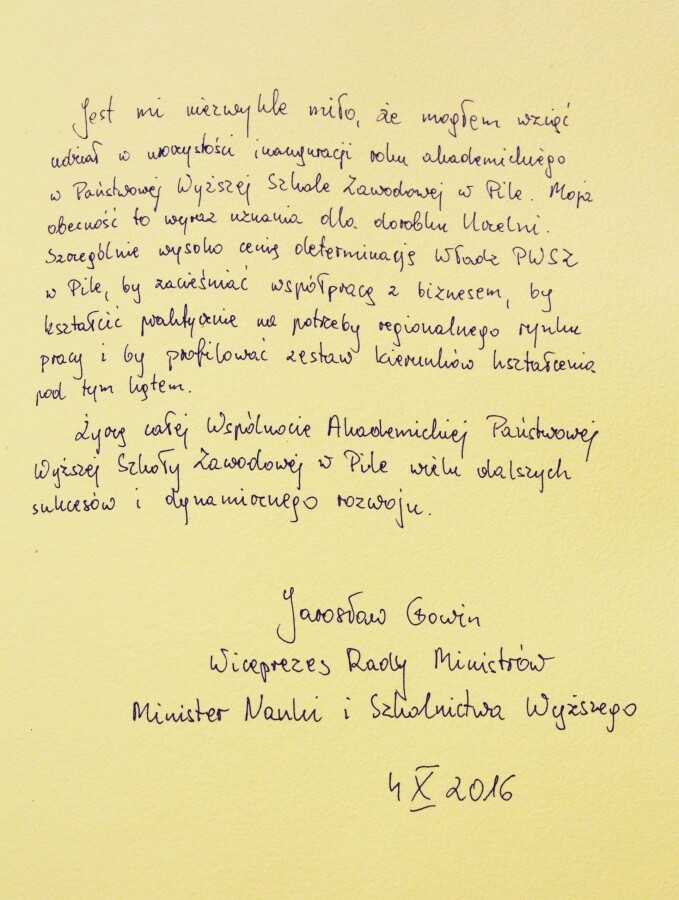 Jest mi niezwykle miło, że mogłem wziąć
udział w uroczystości inauguracji roku akademickiego
w Państwowej Wyższej Szkole Zawodowej w Pile. Moja
obecność to wyraz uznania dla dorobku Uczelni.
Szczególnie wysoko cenię determinację Władz PWSZ
w Pile, by zacieśniać współpracę z biznesem, by
kształcić praktycznie na potrzeby regionalnego rynku
pracy i by profilować zestaw kierunków kształcenia
pod tym kątem.
Życzę całej Wspólnocie Akademickiej Państwowej
Wyższej Szkoły Zawodowej w Pile wielu dalszych
sukcesów i dynamicznego rozwoju.
Jarosław Gowin
Wiceprezes Rady Ministrów
Minister Nauki i Szkolnictwa Wyższego
4 X 2016